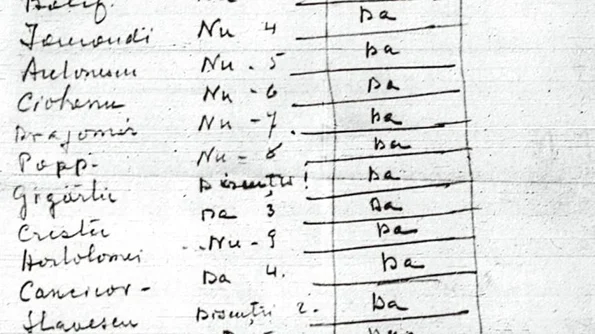 Nu 4 Da
Antonescu Nu - 5 Da
Ciobanu Nu - 6 Da
Dragomir Nu - 7 Da
Popp. Nu - 8 Da
Gigârtu Discuții! Da
Cristu Da 3 Da
Hortolomei Nu - 9 Da
Cancicov - Da 4. Da
Slavescu Discuții 2. Da